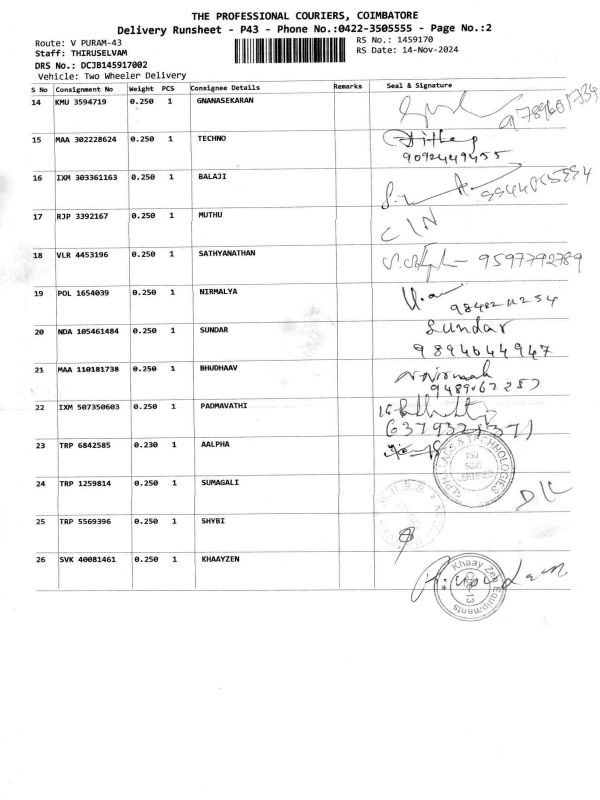 THE PROFESSIONAL COURIERS, COIMBATORE
Delivery Runsheet - P43 - Phone No.:0422-3505555 - Page No.:2
Route: V PURAM-43
RS No.: 1459170
Staff: THIRUSELVAM
RS Date: 14-Nov-2024
DRS No.: DCJB145917002
Vehicle: Two Wheeler Delivery
S No Consignment No Weight PCS Consignee Details Remarks Seal & Signature
14 KMU 3594719 0.250 1 GNANASEKARAN
15 MAA 302228624 0.250 1 TECHNO
9092449455
16 IXM 303361163 0.250 1 BALAJI
17 RJP 3392167 0.250 1 MUTHU
CIN
18 VLR 4453196 0.250 1 SATHYANATHAN 9597792789
19 POL 1654039 0.250 1 NIRMALYA
20 NDA 105461484 0.250 1 SUNDAR Sundar
9894644947
21 MAA 110181738 0.250 1 BHUDHAAV
22 IXM 507350603 0.250 1 PADMAVATHI
23 TRP 6842585 0.230 1 AALPHA
24 TRP 1259814 0.250 1 SUMAGALI
25 TRP 5569396 0.250 1 SHYBI
26 SVK 40081461 0.250 1 KHAAYZEN
Khaay Zen Equipments